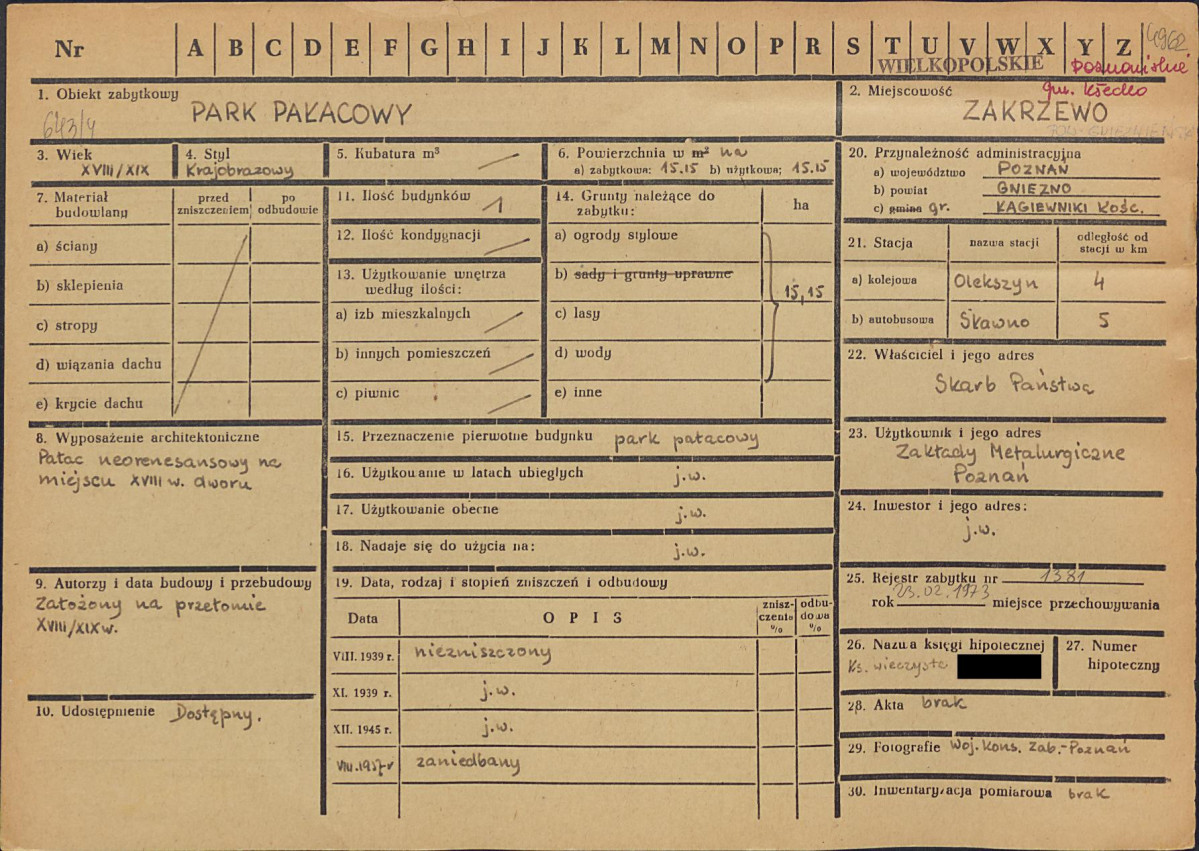 Nr A B C D E F G H I J K L M N O P R S T U V W X Y Z
4962
WIELKOPOLSKIE
poznańskie
gm. Kłecko
1. Obiekt zabytkowy
PARK PAŁACOWY
643/4
2. Miejscowość
ZAKRZEWO
POW. GNIEŹNIEŃSKI
3. Wiek
XVIII/XIX
4. Styl
Krajobrazowy
5. Kubatura m³
6. Powierzchnia w m² ha
a) zabytkowa: 15.15 b) użytkowa; 15.15
7. Materiał budowlany
przed zniszczeniem
po odbudowie
a) ściany
b) sklepienia
c) stropy
d) wiązania dachu
e) krycie dachu
8. Wyposażenie architektoniczne
Pałac neorenesansowy na
miejscu XVIII w. dworu
9. Autorzy i data budowy i przebudowy
Założony na przełomie
XVIII/XIX w.
10. Udostępnienie Dostępny.
11. Ilość budynków 1
12. Ilość kondygnacji
13. Użytkowanie wnętrza
według ilości:
a) izb mieszkalnych
b) innych pomieszczeń
c) piwnic
14. Grunty należące do
zabytku:
ha
a) ogrody stylowe
b) sady i grunty uprawne
15,15
c) lasy
d) wody
e) inne
15. Przeznaczenie pierwotne budynku park pałacowy
16. Użytkowanie w latach ubiegłych j.w.
17. Użytkowanie obecne j.w.
18. Nadaje się do użycia na: j.w.
19. Data, rodzaj i stopień zniszczeń i odbudowy
Data
OPIS
znisz-
czenia
%
odbu-
dowa
%
VIII. 1939 r. niezniszczony
XI. 1939 r. j.w.
XII. 1945 r. j.w.
VIII.1957 r zaniedbany
20. Przynależność administracyjna
a) województwo POZNAŃ
b) powiat GNIEZNO
c) gmina gr. ŁAGIEWNIKI KOŚC.
21. Stacja
nazwa stacji
odległość od
stacji w km
a) kolejowa Olekszyn 4
b) autobusowa Sławno 5
22. Właściciel i jego adres
Skarb Państwa
23. Użytkownik i jego adres
Zakłady Metalurgiczne
Poznań
24. Inwestor i jego adres:
j.w.
25. Rejestr zabytku nr 1381
rok 23.02.1973 miejsce przechowywania
26. Nazwa księgi hipotecznej
Ks. wieczysta
27. Numer
hipoteczny
28. Akta brak
29. Fotografie Woj. Kons. Zab. - Poznań
30. Inwentaryzacja pomiarowa brak